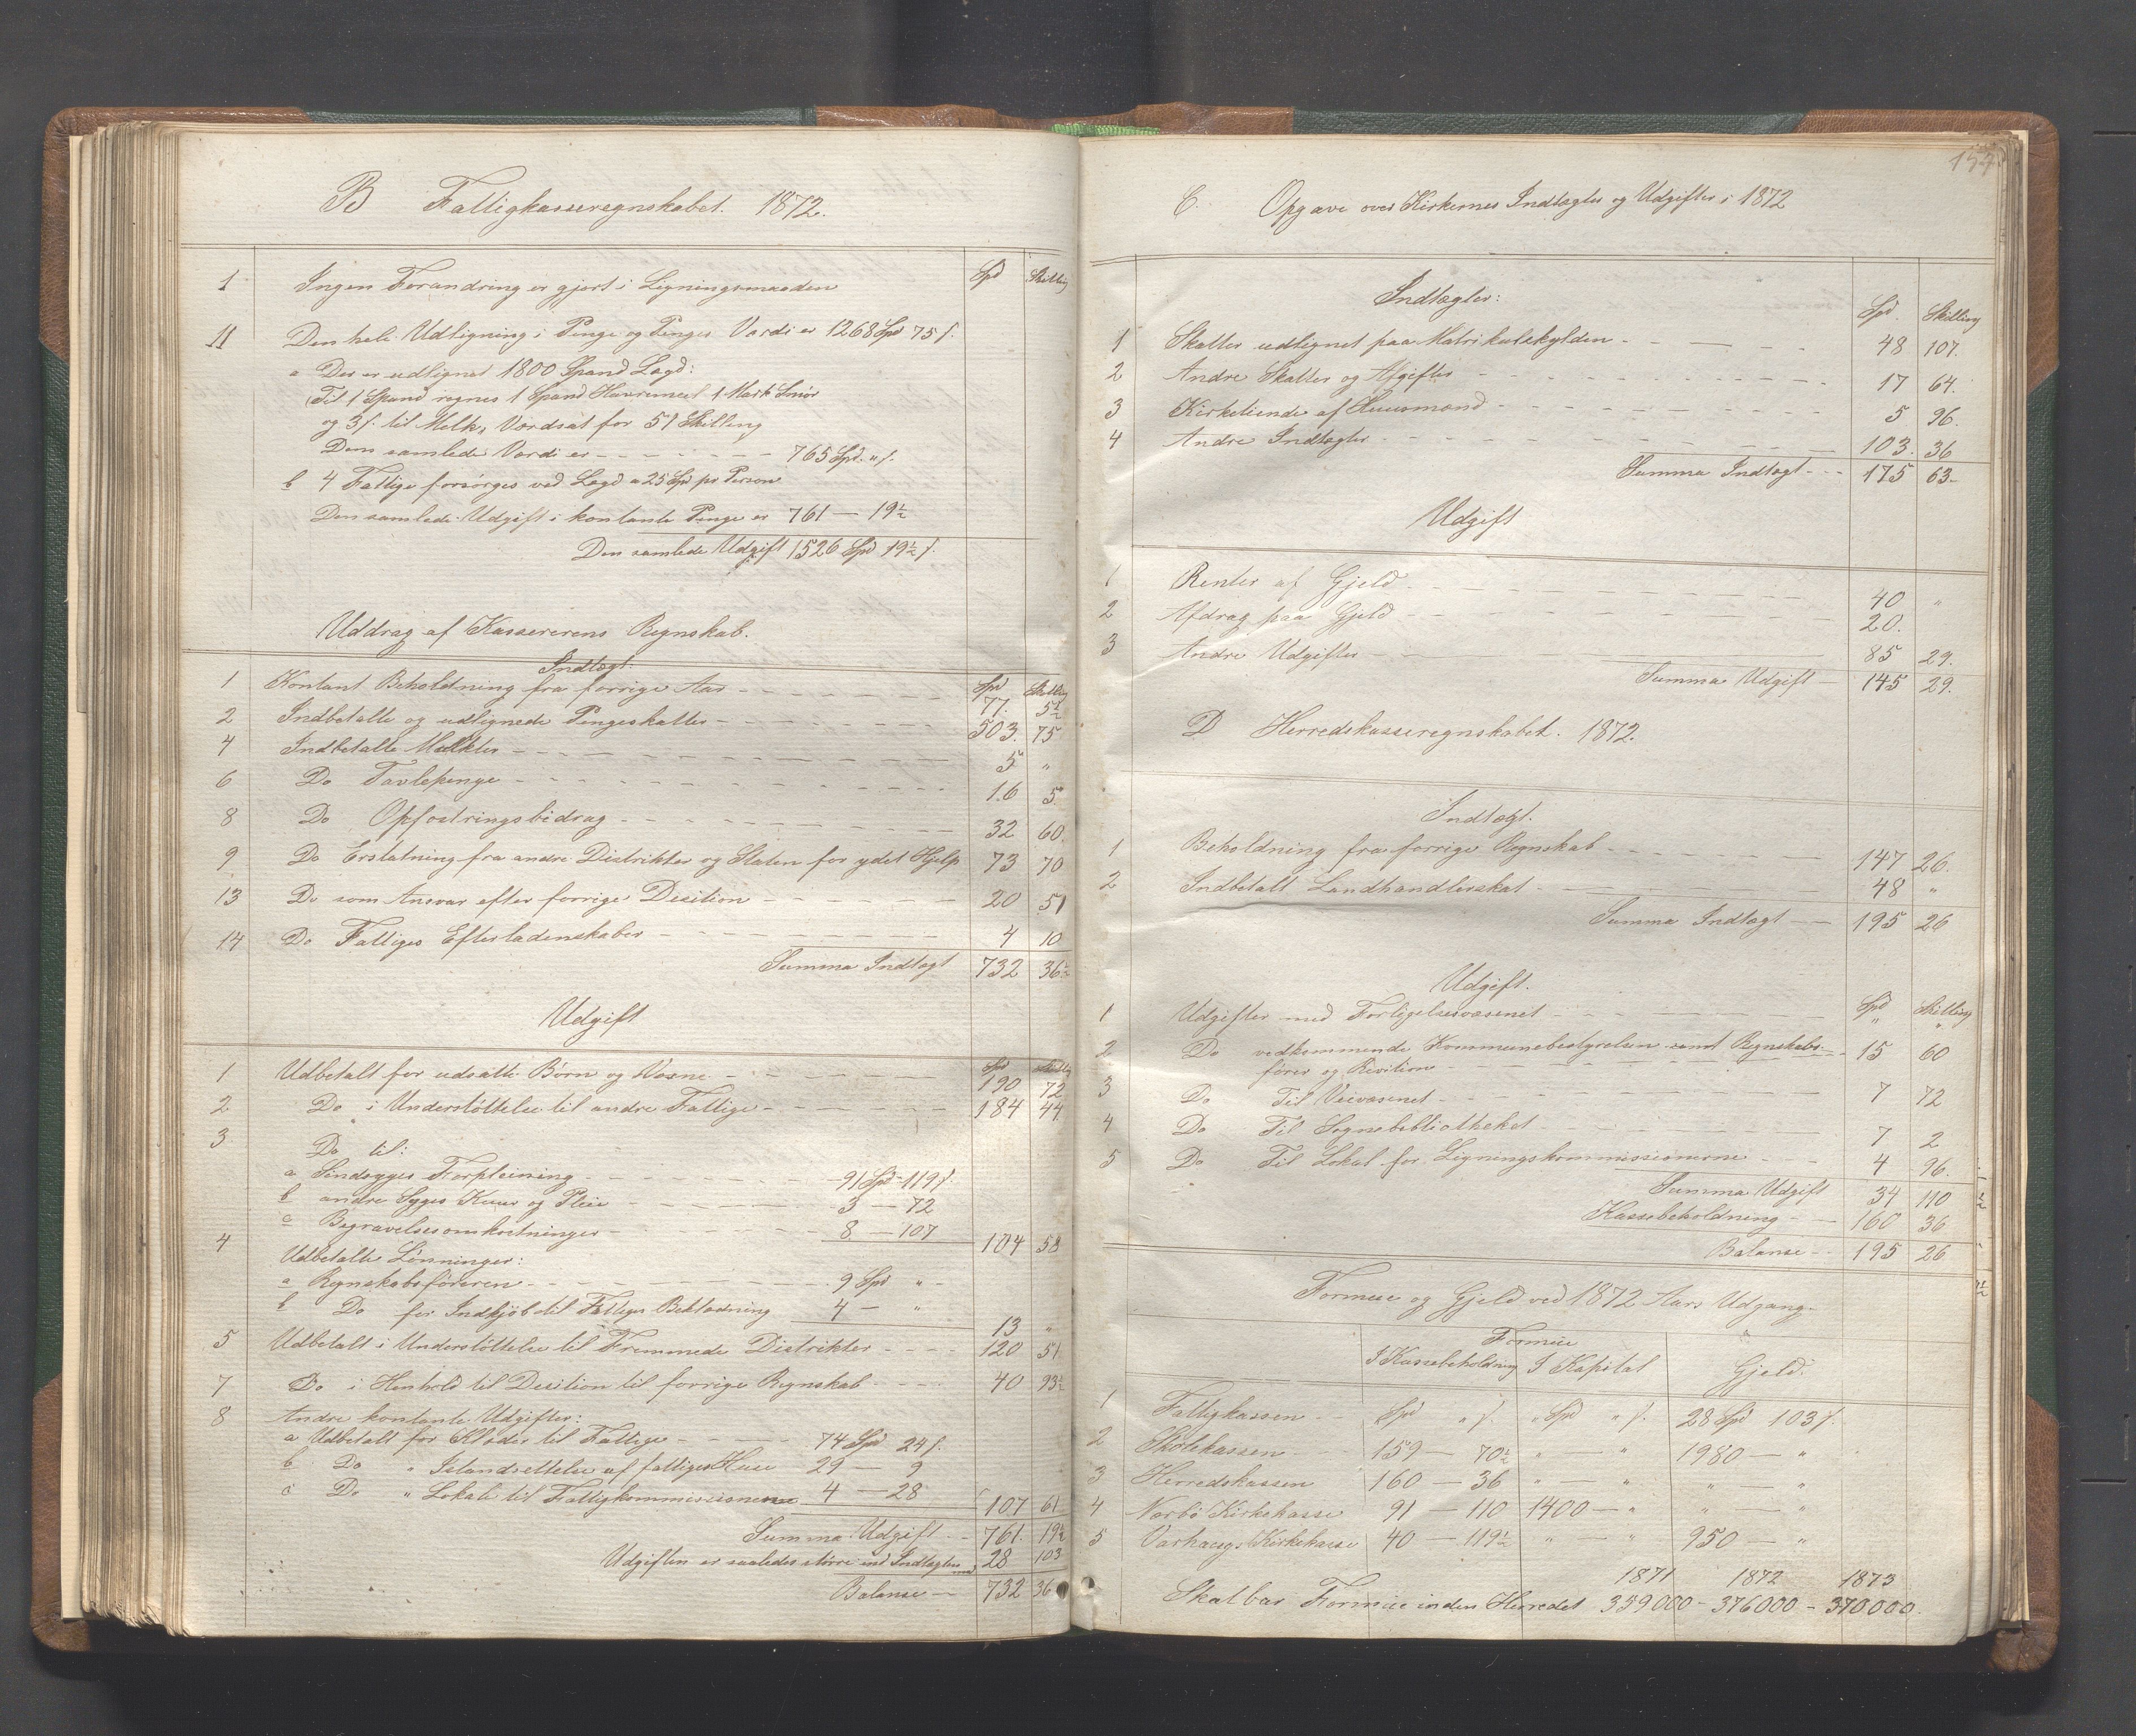 B Fattigkasseregnskabet. 1872.
Spd Skilling
1 Ingen Forandring er gjort i Ligningsmaaden
11 Den hele Udligning i Penge og Penges Værdi er 1268 Spd 75 s.
a Der er udlignet 1800 Spand Lægd:
Til 1 Spand regnes 1 Spand Havremeel 1 Mark Smør
og 3 s. til Melk, Værdsat for 51 Skilling
Dens samlede Værdi er - - - - - 765 Spd. " s.
b 4 Fattige forsørges ved Lægd a 25 Spd pr Person
Den samlede Udgift i kontante Penge er 761 — 19½
Den samlede Udgift 1526 Spd 19½ s.
Uddrag af Kassererens Regnskab.
Indtægt.
Spd Skilling
1 Kontant Beholdning fra forrige Aar - - - 77. 5½
2 Indbetalte og udlignede Pengeskatter - - - 503. 75
4 Indbetalte Mulkter - - - 5 "
6 Do Tavlepenge - - - 16 5.
8 Do Opfostringsbidrag - - - 32 60.
9 Do Erstatning fra andre Distrikter og Staten for ydet Hjelp 73 70
13 Do som Ansvar efter forrige Desition - - - 20 51
14 Do Fattiges Efterladenskaber - - - 4 10
Summa Indtægt 732 36½
Udgift
Spd Skilling
1 Udbetalt for udsatte Børn og Vaxne - - - 190 72
2 Do i Understøttelse til andre Fattige - - - 184 44
3 Do til:
a Sindsyges Forpleining - - - 91 Spd - 119 s.
b andre Syges Kuur og Pleie - - - 3 — 72
c Begravelsesomkostninger - - - 8 — 107
104 58
4 Udbetalte Lønninger:
a Regnskabsføreren - - - 9 Spd " -
b Do for Indkjøb til Fattiges Beklædning 4 — "
13 "
5 Udbetalt i Understøttelse til Fremmede Distrikter - - - 120 51
7 Do i Henhold til Desition til forrige Regnskab - - - 40 93½
8 Andre kontante Udgifter:
a Udbetalt for Klæder til Fattige - - - 74 Spd 24 s.
b Do " Istandsettelse af fattiges Huse 29 — 9
c Do " Lokale til Fattigkommissionerne 4 — 28
107 61
Summa Udgift - - 761. 19½
Udgiften er saaledes større end Indtægten med 28 103
Balanse — 732 36
154.
C. Opgave over Kirkernes Indtægter og Udgifter i 1872
Indtægter:
Spd. Skilling
1 Skatter udlignet paa Matrikulskylden - - - 48 107.
2 Andre Skatter og Afgifter - - - 17 64.
3 Kirketiende af Huusmænd - - - 5 96.
4 Andre Indtægter - - - 103. 36
Summa Indtægt - - - 175 63.
Udgift
1 Renter af Gjeld - - - 40 "
2 Afdrag paa Gjeld - - - 20.
3 Andre Udgifter - - - 85 29.
Summa Udgift — 145 29.
D Herredskasseregnskabet. 1872.
Indtægt.
1 Beholdning fra forrige Regnskab - - - 147 26.
2 Indbetalt Landhandlerskat - - - 48 "
Summa Indtægt — 195 26
Udgift.
Spd Skilling
1 Udgifter med Forligelsesvæsenet - - - " "
2 Do vedkommende Kommunebestyrelsen samt Regnskabs-
fører og Revition - - - 15 60
3 Do Til Veivæsenet - - - 7 72
4 Do Til Sognebibliotheket - - - 7 2
5 Do Til Lokal for Ligningskommissionerne - - - 4 96.
Summa Udgift 34 110
Kassebeholdning - — 160 36
Balanse - - 195 26
Formue og Gjeld ved 1872 Aars Udgang.
Formue
I Kassebeholdning I Kapital Gjeld.
1 Fattigkassen - - Spd " s. " Spd " s. 28 Spd 103 s.
2 Skolekassen - - 159 — 70½ " — " 1980 — "
3 Herredskassen 160 — 36 " — " " — "
4 Nærbø Kirkekasse 91 — 110 1400 — " " — "
5 Varhaugs Kirkekasse 40 — 119½ " — " 950 — "
1871 1872 1873
Skatbar Formue inden Herredet 359000 - 376000 - 370000.